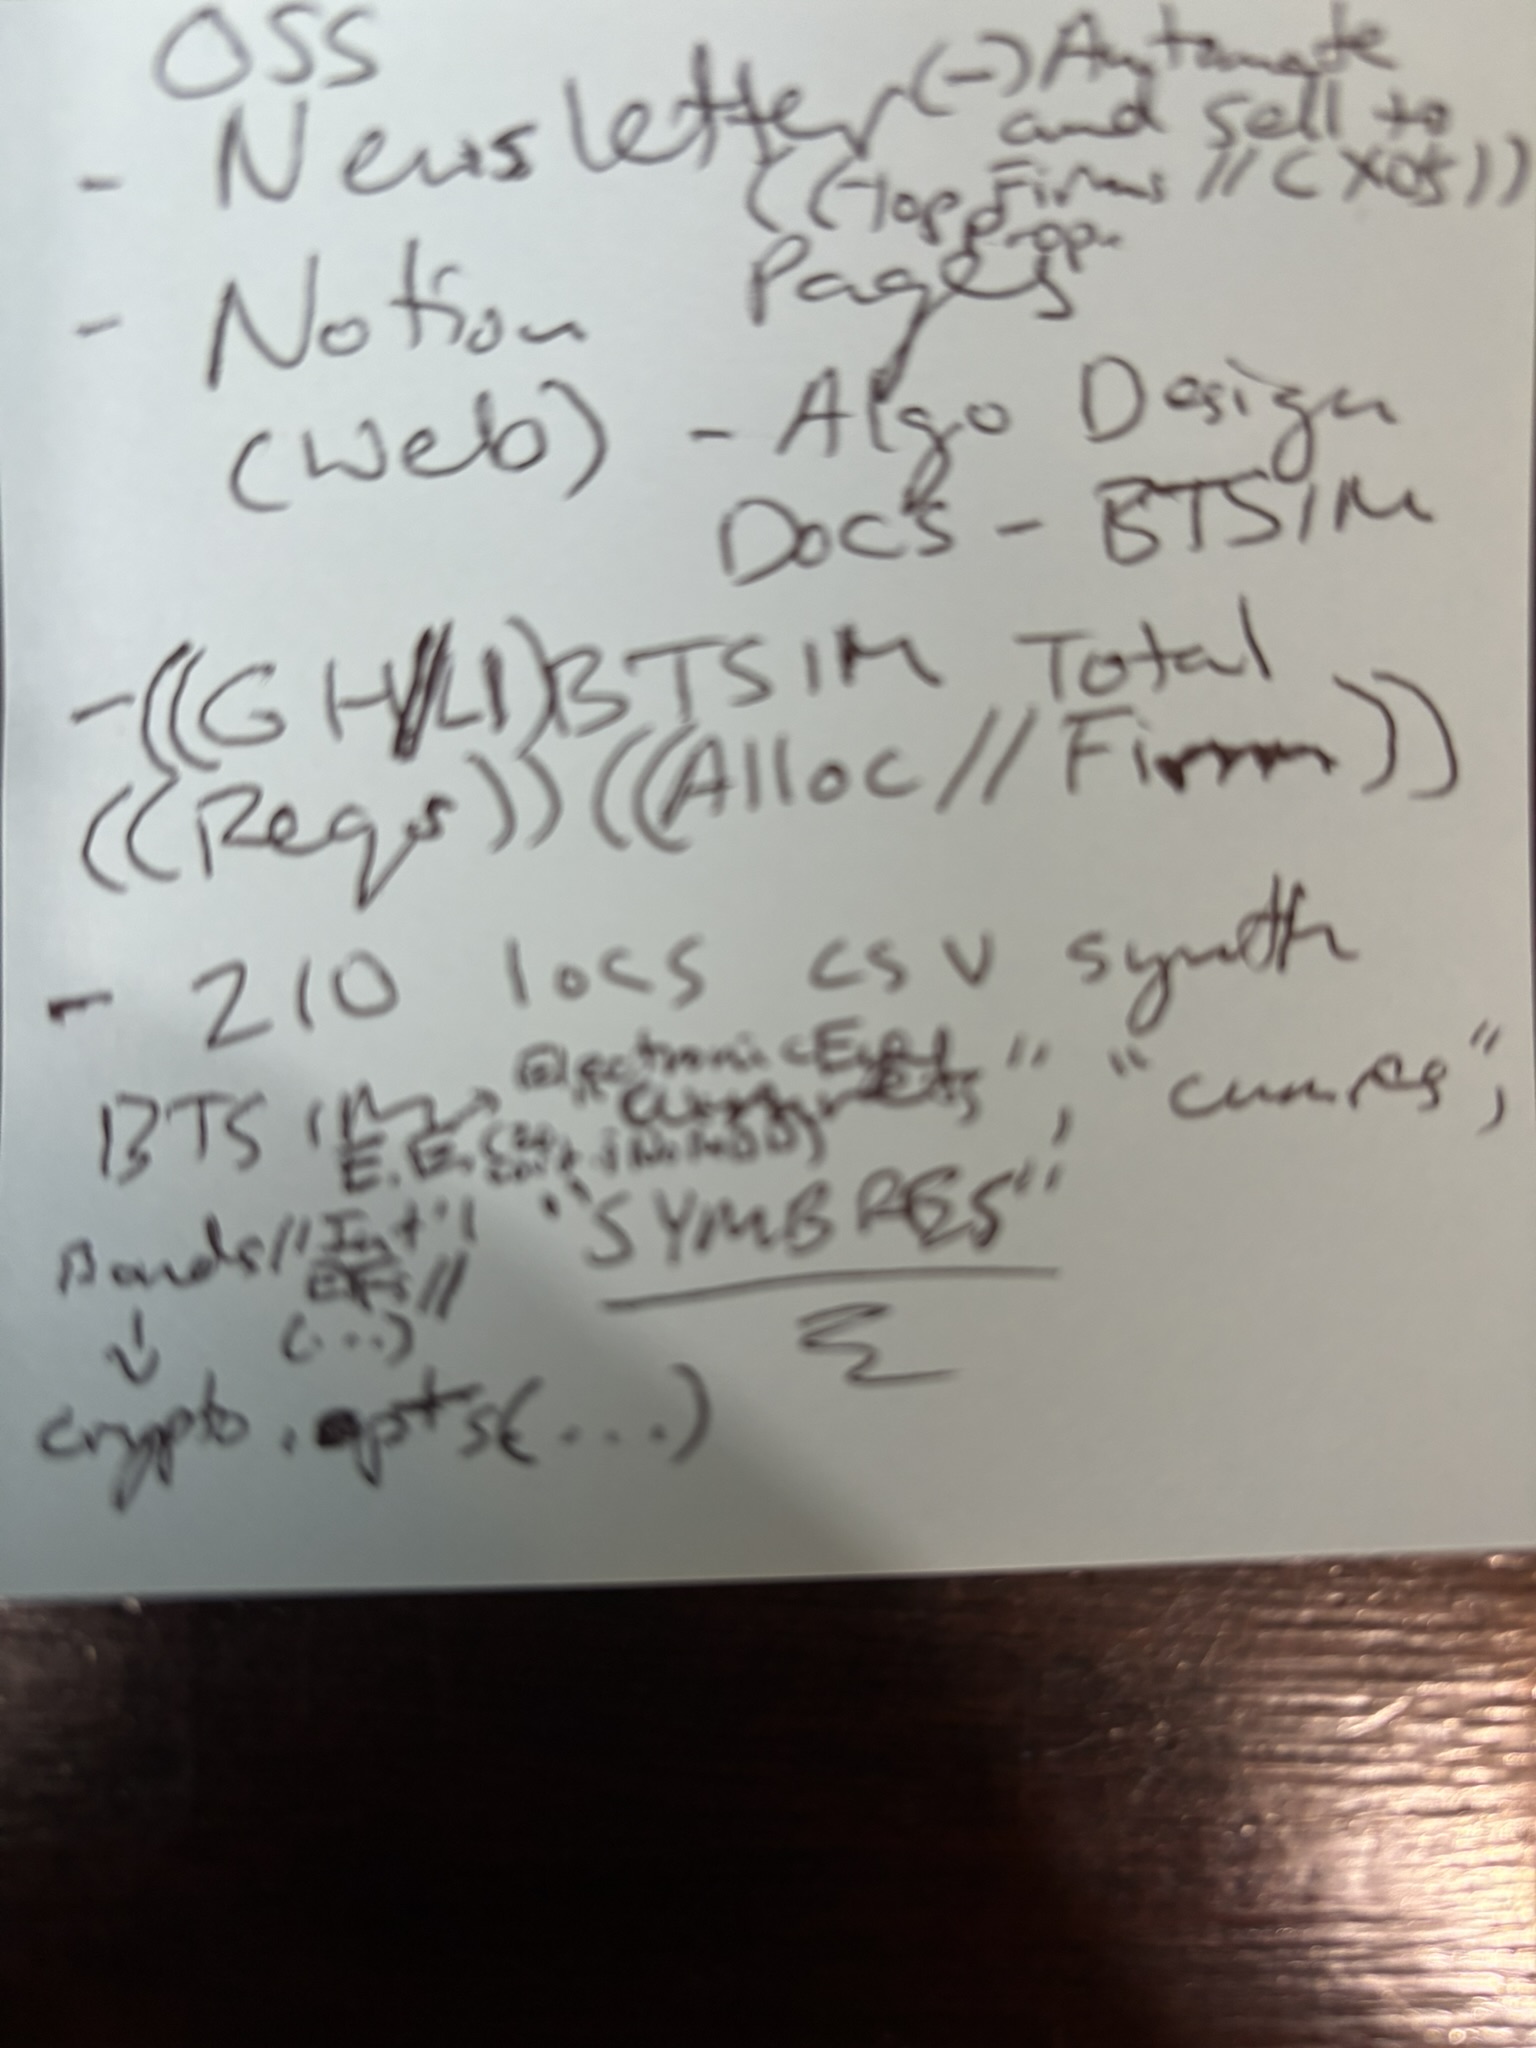 OSS
- Newsletter (-) Automate
and Sell to
((Top Firms // CXOs))
Prop.
- Notion Pages
(Web) - Algo Design
Docs - BTSIM
- ((GH//LI) BTSIM Total
((Reqs)) ((Alloc // Firm))
- 210 locs csv synth
BTSIM
E.E.
", "
",
Bonds // Int'l "SYMBRES"
//
↓ (...)
Σ
crypto . opts (...)